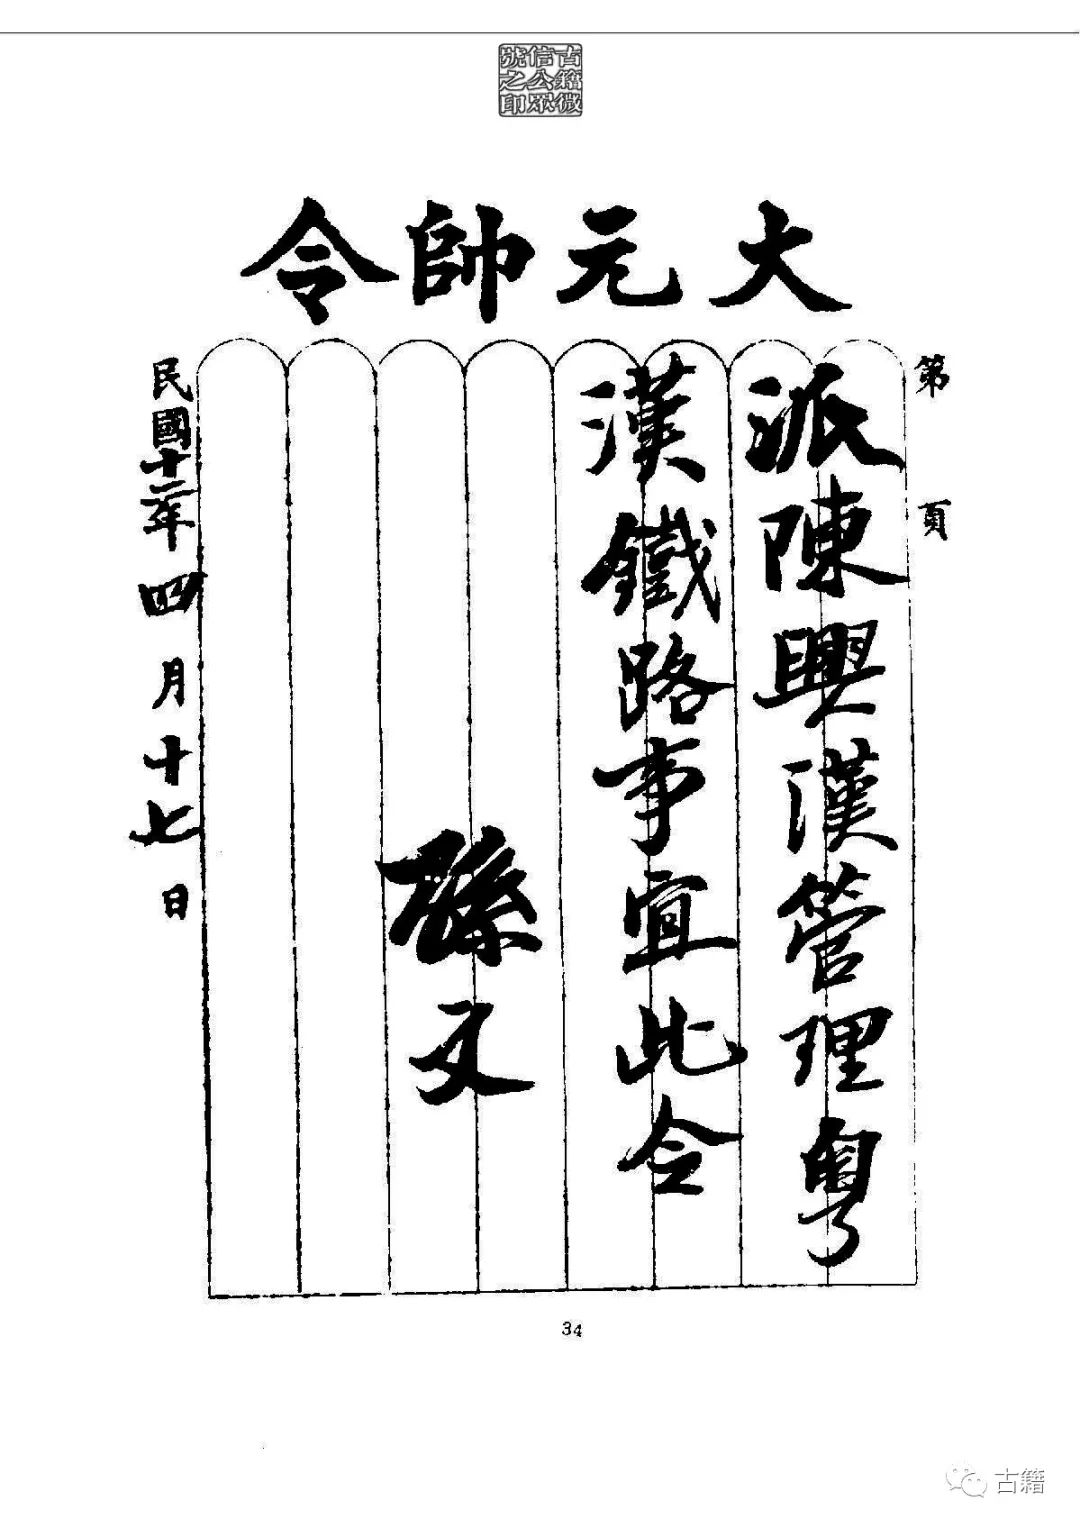 古籍微
信公眾
號之印
大元帥令
第 頁
派陳興漢管理粵
漢鐵路事宜此令
孫文
民國十二年四月十七日
34
古籍